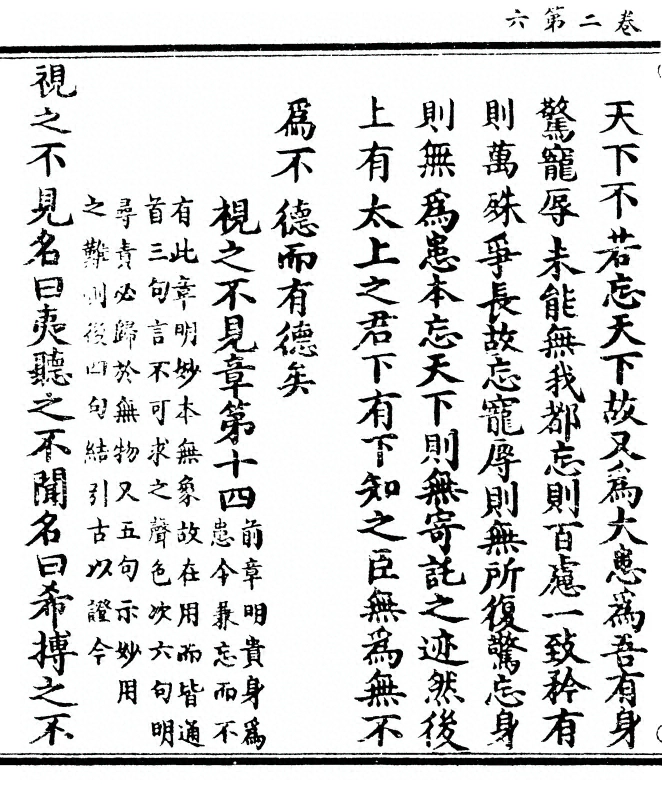 卷二第六
天下不若忘天下故又爲大患爲吾有身
驚寵辱未能無我都忘則百慮一致矜有
則萬殊爭長故忘寵辱則無所復驚忘身
則無爲患本忘天下則無寄託之迹然後
上有太上之君下有下知之臣無爲無不
爲不德而有德矣
視之不見章第十四
前章明貴身爲
患今兼忘而不
有此章明妙本無象故在用而皆通
首三句言不可求之聲色次六句明
尋責必歸於無物又五句示妙用
之難測後四句結引古以證今
視之不見名曰夷聽之不聞名曰希搏之不